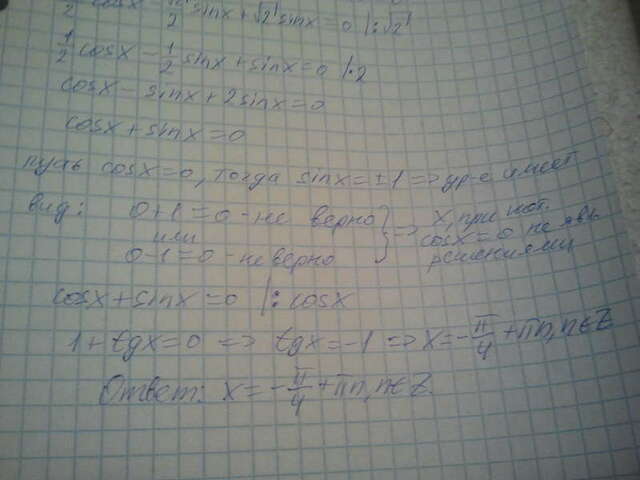 sinx + √2 sinx = 0 | : √2
1/2 cosx - 1/2 sinx + sinx = 0 |·2
cosx - sinx + 2sinx = 0
cosx + sinx = 0
пусть cosx = 0, тогда sinx = ±1 => ур-е имеет
вид: 0 + 1 = 0 - не верно } => x, при кот.
или cosx = 0 не явл
0 - 1 = 0 - неверно решениями
cosx + sinx = 0 | : cosx
1 + tgx = 0 => tgx = -1 => x = -π/4 + πn, n∈Z
Ответ: x = -π/4 + πn, n∈Z